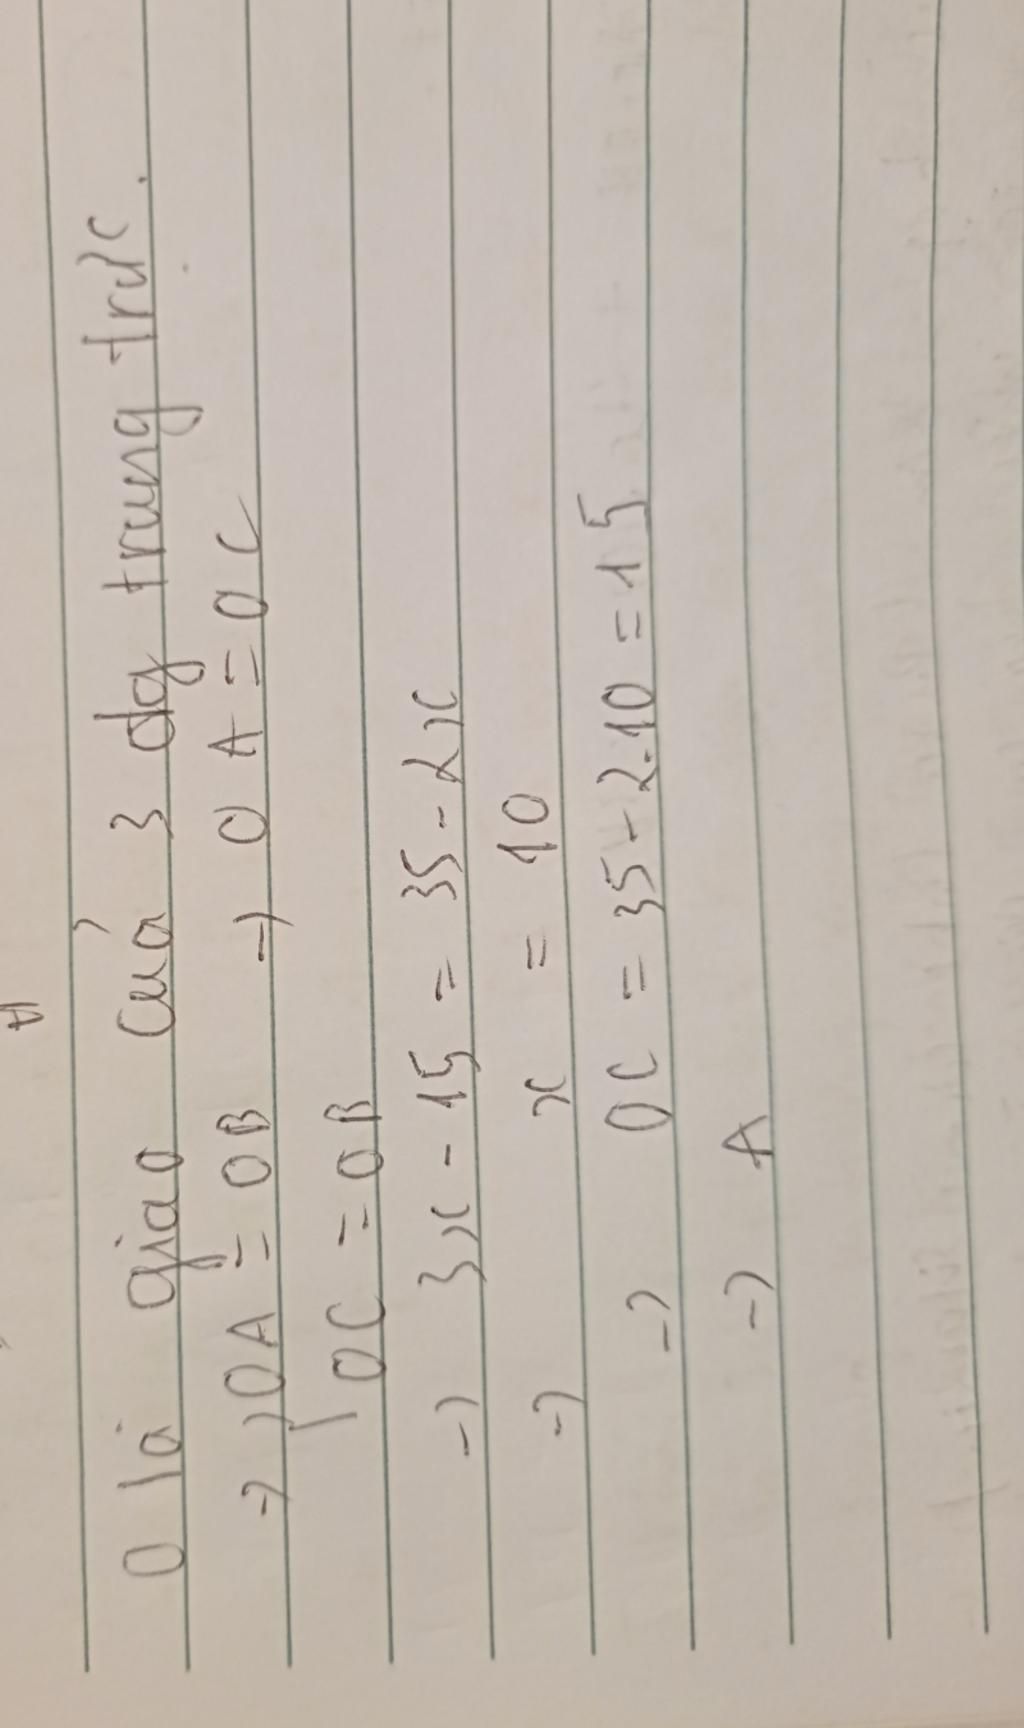 O là giao của 3 đg trung trực.
→ { OA = OB → OA = OC
OC = OB
→ 3x - 15 = 35 - 2x
→ x = 10
→ OC = 35 - 2.10 = 15
→ A